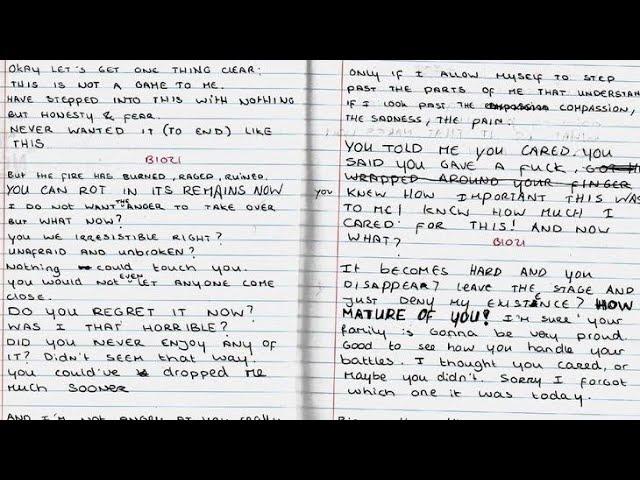 OKAY LET'S GET ONE THING CLEAR:
THIS IS NOT A GAME TO ME.
HAVE STEPPED INTO THIS WITH NOTHING
BUT HONESTY & FEAR.
NEVER WANTED IT (TO END) LIKE
THIS
BIO21
BUT THE FIRE HAS BURNED, RAGED, RUINED.
YOU CAN ROT IN ITS REMAINS NOW
I DO NOT WANT THE ANGER TO TAKE OVER
BUT WHAT NOW?
YOU WE IRRESISTIBLE RIGHT?
UNAFRAID AND UNBROKEN?
Nothing could touch you.
you would not EVEN LET ANYONE COME
CLOSE.
DO YOU REGRET IT NOW?
WAS I THAT HORRIBLE?
DID YOU NEVER ENJOY ANY OF
IT? Didn't SEEM THAT WAY.
you could've dropped me
much SOONER
AND I'M NOT ANGRY AT YOU
ONLY IF I ALLOW MYSELF TO STEP
PAST THE PARTS OF ME THAT UNDERSTAN
IF I LOOK PAST THE COMPASSION,
THE SADNESS, THE PAIN
YOU TOLD ME YOU CARED. YOU
SAID YOU GAVE A FUCK, GOT ME
WRAPPED AROUND YOUR FINGER
YOU KNEW HOW IMPORTANT THIS WAS
TO ME! KNEW HOW MUCH I
CARED FOR THIS! AND NOW
WHAT?
BIO21
It BECOMES HARD AND YOU
DISAPPEAR? LEAVE THE STAGE AND
JUST DENY MY EXISTENCE? HOW
MATURE OF YOU! I'm sure your
family is Gonna be very proud.
Good to see how you handle your
battles. I thought you cared, or
Maybe you didn't. Sorry I forgot
which one it was today.